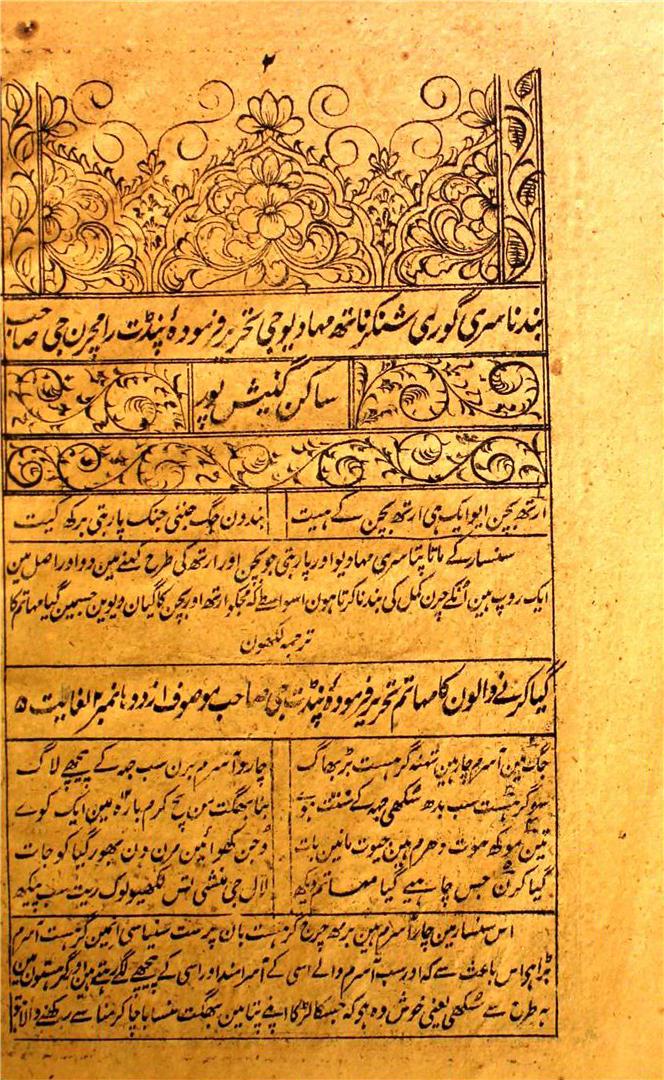 ۲
بندنا سری گوری شنکر ناتھ مہادیو جی تحریر فرمودۂ پنڈت رامچرن جی صاحب
ساکن گنیش پور
ارتھ بچن ایو ایک ہی ارتھ بچن کے ہیت بندون جگ جننی جنک پاربتی برکھ کیت
سنسار کے ماتا پتا سری مہادیو اور پاربتی جو بچن اور ارتھ کی طرح کہنے مین دو اور اصل مین
ایک روپ ہین اُنکے چرن کمل کی بندنا کرتا ہون اسواسطے کہ مجکو ارتھ اور بچن کا گیان دیوین جسمین گیا مہاتم کا
ترجمہ لکھون
گیا کرنے والون کا مہاتم تحریر فرمودۂ پنڈت جی صاحب موصوف از دوہا نمبر ۲ لغایت ۵
جگ مین آسرم چار ہین تنہہ گرہست بڑبھاگ چارو آسرم برن سب جہ کے پیچھے لاگ
سو گرہست سب بدھ سُکھی جہ کے سنت ہوے پتا بھگت من بچ کرم بارہ مین ایک کوے
تین موکھ ہوت دھرم ہین جیوت مانین بات و دن مرن دن بھور گیا کو جات
گیا کرن جس چاہیے گیا مہاتم دیکھ لال جی منشی اتس لکھیو لوک ریت سب پیکھ
اس سنسار مین چار آسرم ہین برھم چرج گرہست بان پرست سنیاسی انمین گرہست آسرم
بڑا ہی اس باعث سے کہ اور سب آسرم والے اسی کے آسرا سند اور اسی کے پیچھے لگے رہتے ہین اور گرہستون مین
ہر طرح سے سُکھی یعنی خوش وہ ہی کہ جسکا لڑکا اپنے پتا مین بھگت منسا باچا کرمنا سے رکھنے والا